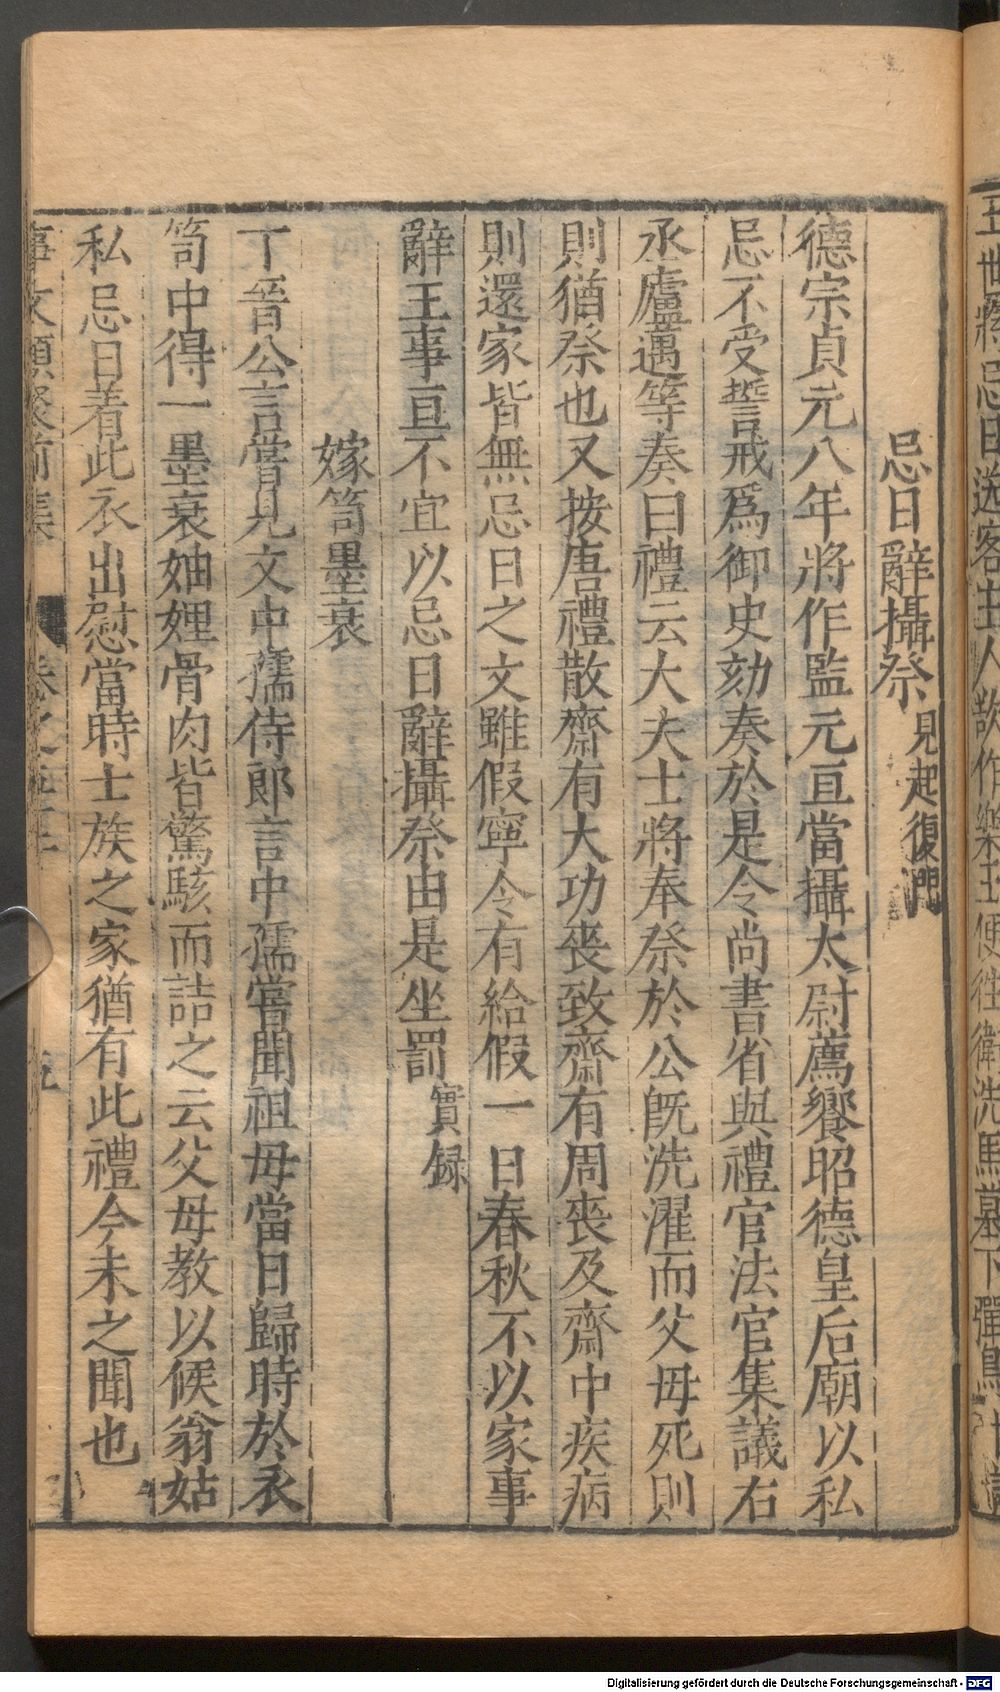 忌日辭攝祭見起復門
德宗貞元八年將作監元亘當攝太尉薦饗昭德皇后廟以私
忌不受誓戒爲御史劾奏於是令尚書省與禮官法官集議右
丞盧邁等奏曰禮云大夫士將奉祭於公旣洗濯而父母死則
則猶祭也又按唐禮散齋有大功喪致齋有周喪及齋中疾病
則還家皆無忌日之文雖假寧令有給假一日春秋不以家事
辭王事亘不宜以忌日辭攝祭由是坐罰實録
嫁笥墨衰
丁晉公言嘗見文中孺侍郎言中孺嘗聞祖母當日歸時於衣
笥中得一墨衰妯娌骨肉皆驚駭而詰之云父母教以候翁姑
私忌日着此衣出慰當時士族之家猶有此禮今未之聞也
事文類聚前集 卷之五十 五
忌日送客主人欲作樂王便往衛洗馬墓下彈鳥
Digitalisierung gefördert durch die Deutsche Forschungsgemeinschaft - DFG